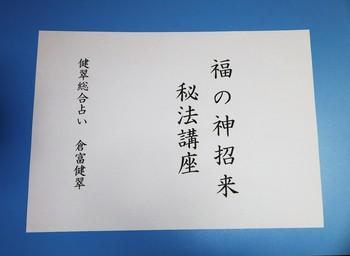 福の神招来
秘法講座
健翠総合占い 倉富健翠